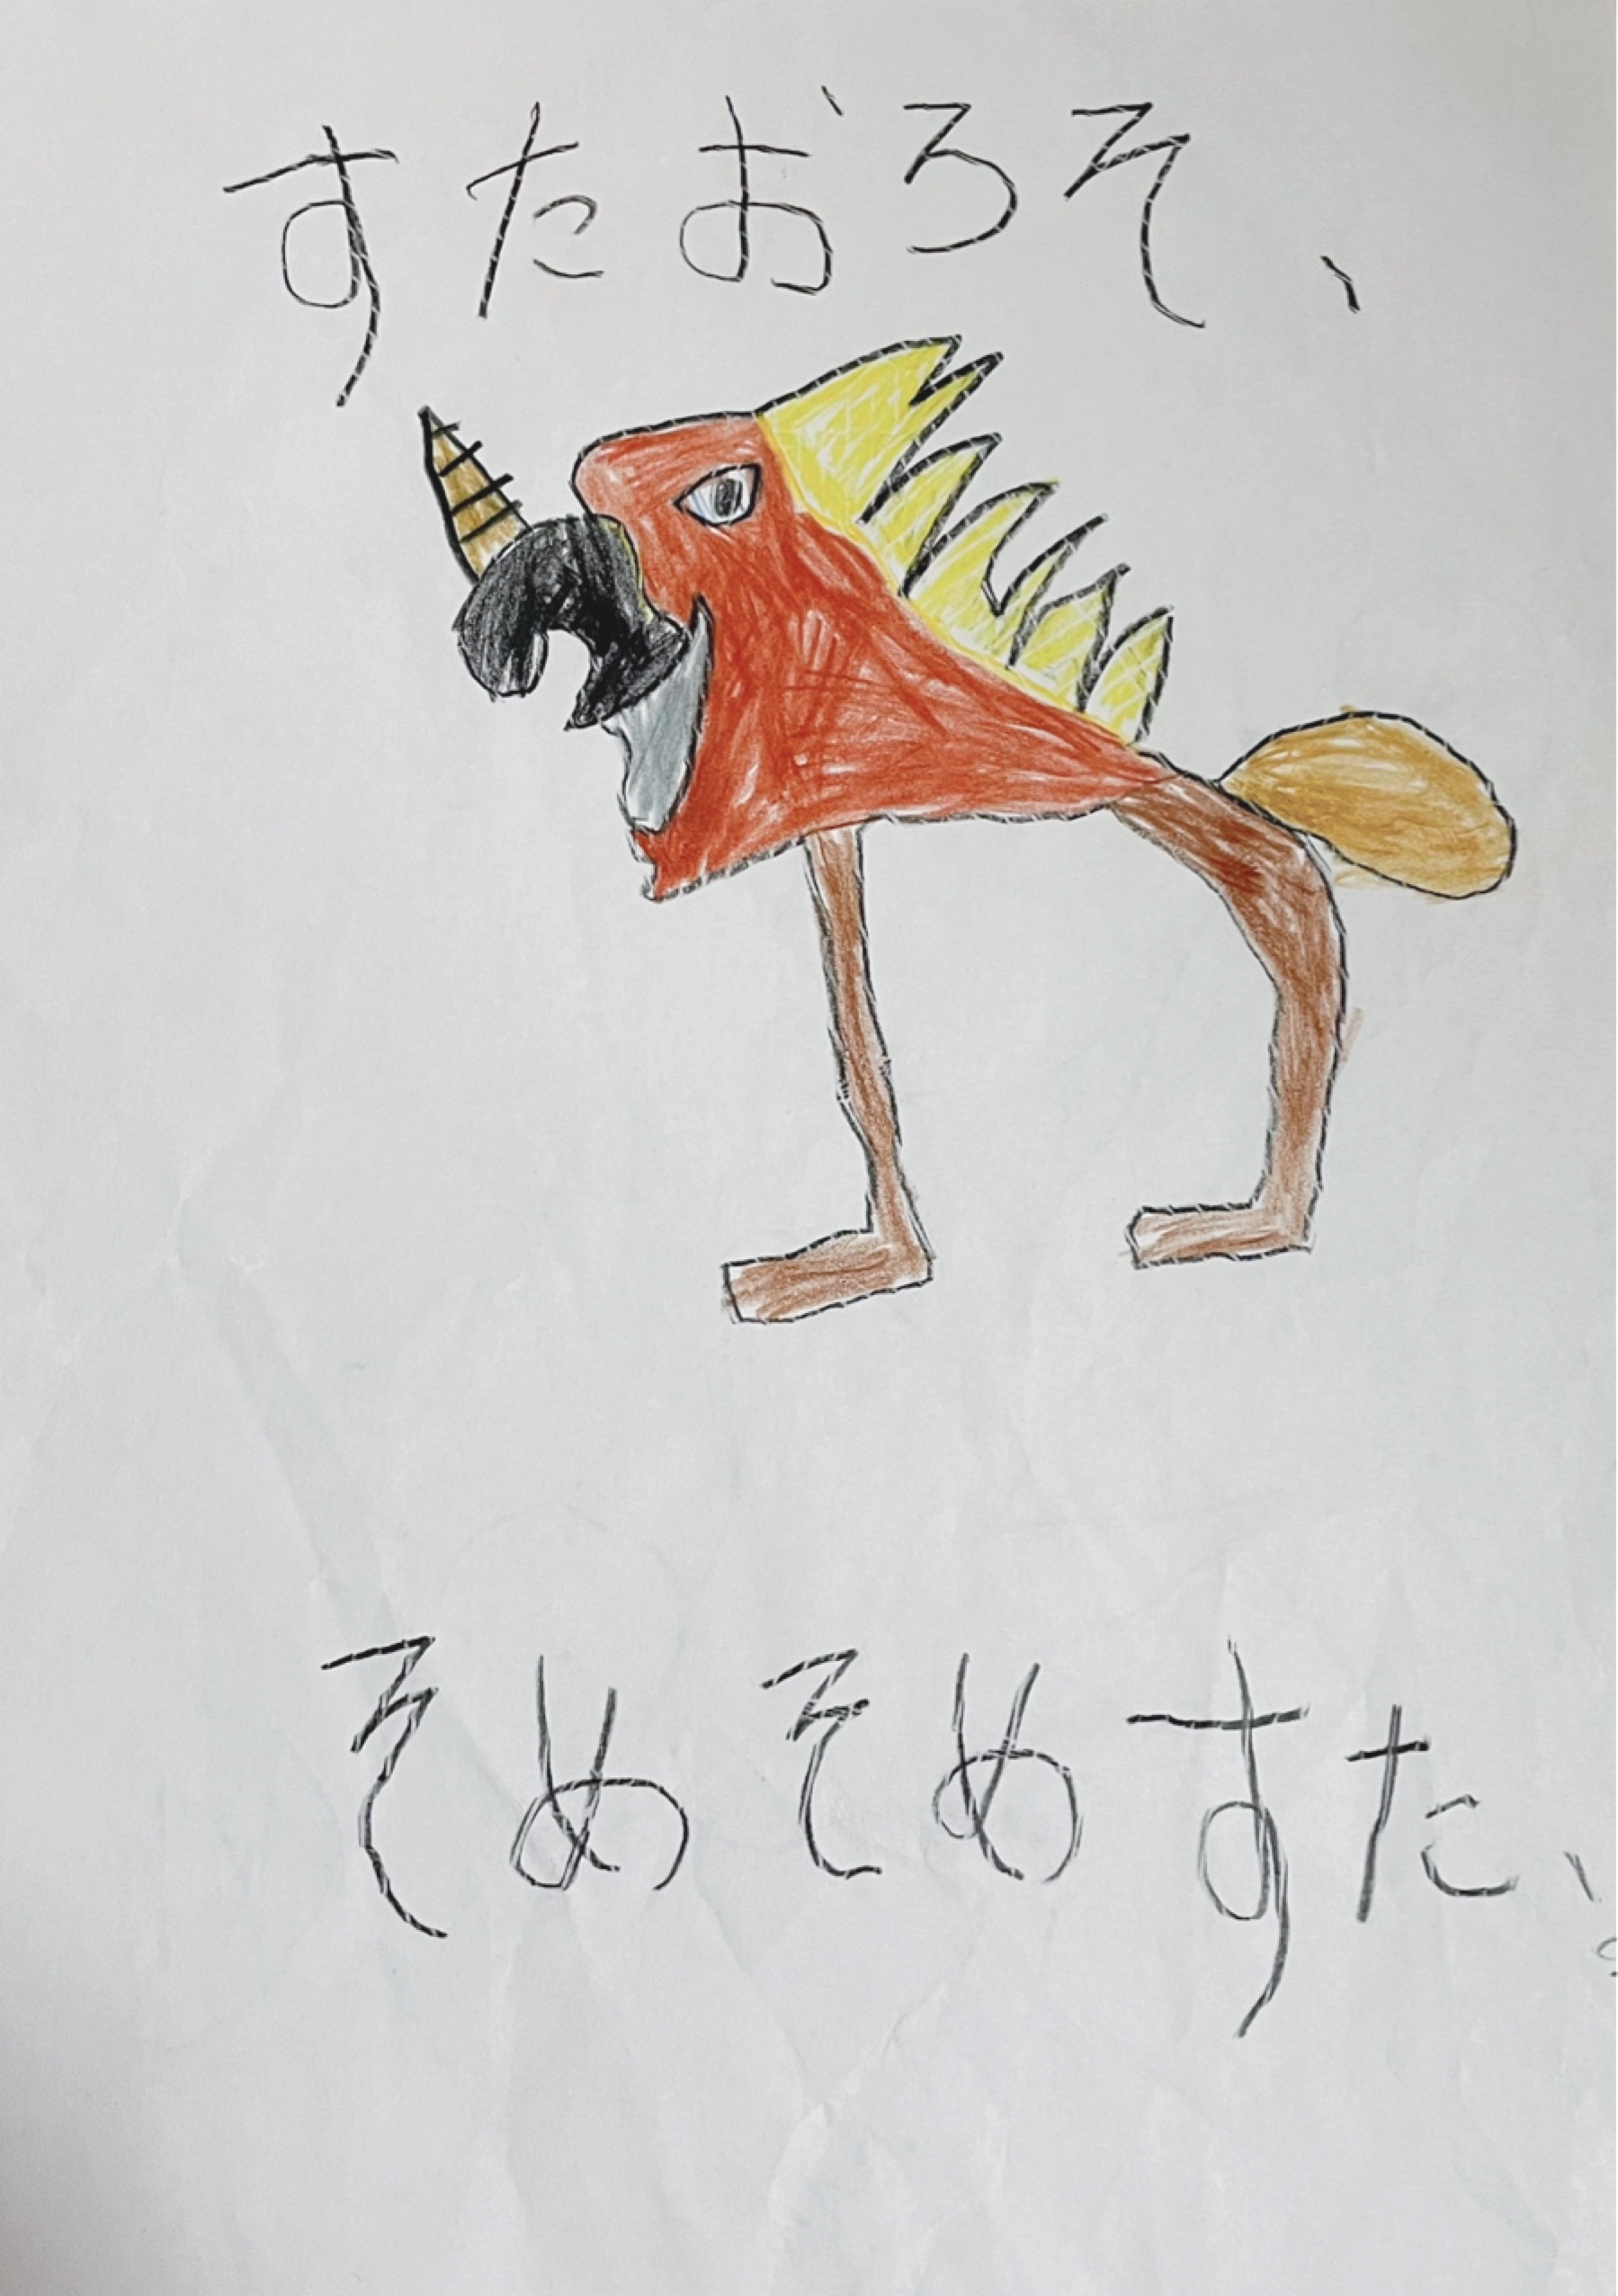 すたおろそ、
そめそめすた、